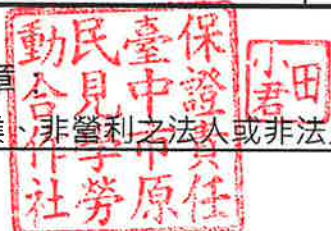 保證責任
臺中市原
民見學勞
動合作社
田
小君
章：
、非營利之法人或非法